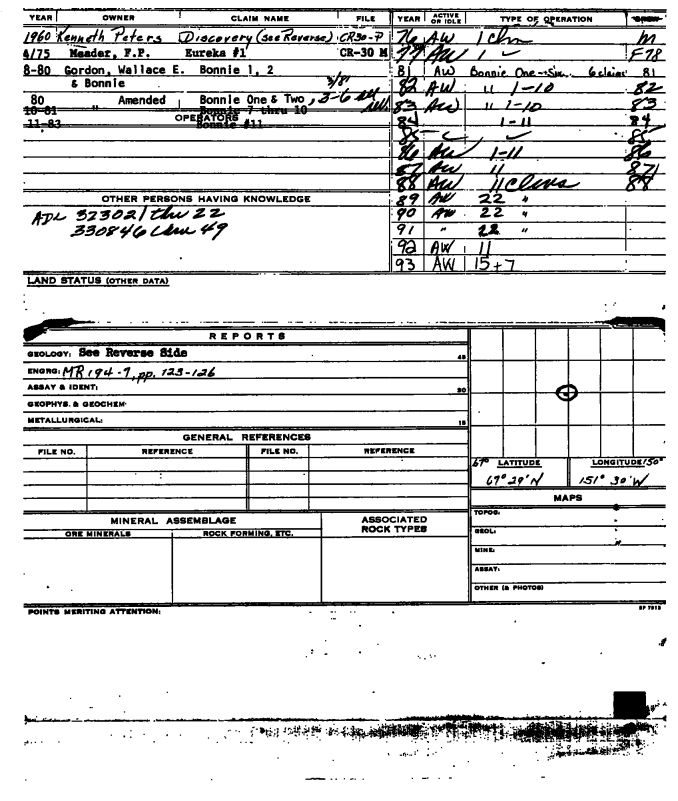 YEAR OWNER CLAIM NAME FILE YEAR ACTIVE OR IDLE TYPE OF OPERATION
1960 Kenneth Peters Discovery (see Reverse) CR30-P 76 AW 1 Clm M
4/75 Meader, F.P. Eureka #1 CR-30 M 77 AW 1 F78
8-80 Gordon, Wallace E. Bonnie 1, 2 81 AW Bonnie One-Six 6 claims 81
& Bonnie 3/81 82 AW " 1-10 82
80 " Amended Bonnie One & Two, 3-6 83 AW " 1-10 83
10-81 Bonnie 7 thru 10
OPERATORS 84 1-11 84
11-83 Bonnie #11
85 85
86 AW 1-11 86
87 AW 11 87
88 AW 11 Clms 88
OTHER PERSONS HAVING KNOWLEDGE 89 AW 22 "
ADL 323021 thru 22 90 AW 22 "
330846 thru 49 91 " 22 "
92 AW 11
93 AW 15+7
LAND STATUS (OTHER DATA)
REPORTS
GEOLOGY: See Reverse Side 45
ENGRG: MR 194-7, pp. 123-126
ASSAY & IDENT: 30
GEOPHYS. & GEOCHEM:
METALLURGICAL: 15
GENERAL REFERENCES
FILE NO. REFERENCE FILE NO. REFERENCE
67° LATITUDE LONGITUDE 150°
67° 29' N 151° 30' W
MAPS
MINERAL ASSEMBLAGE ASSOCIATED ROCK TYPES
ORE MINERALS ROCK FORMING, ETC.
TOPOG.
GEOL:
MINE:
ASSAY:
OTHER (& PHOTOS)
POINTS MERITING ATTENTION: